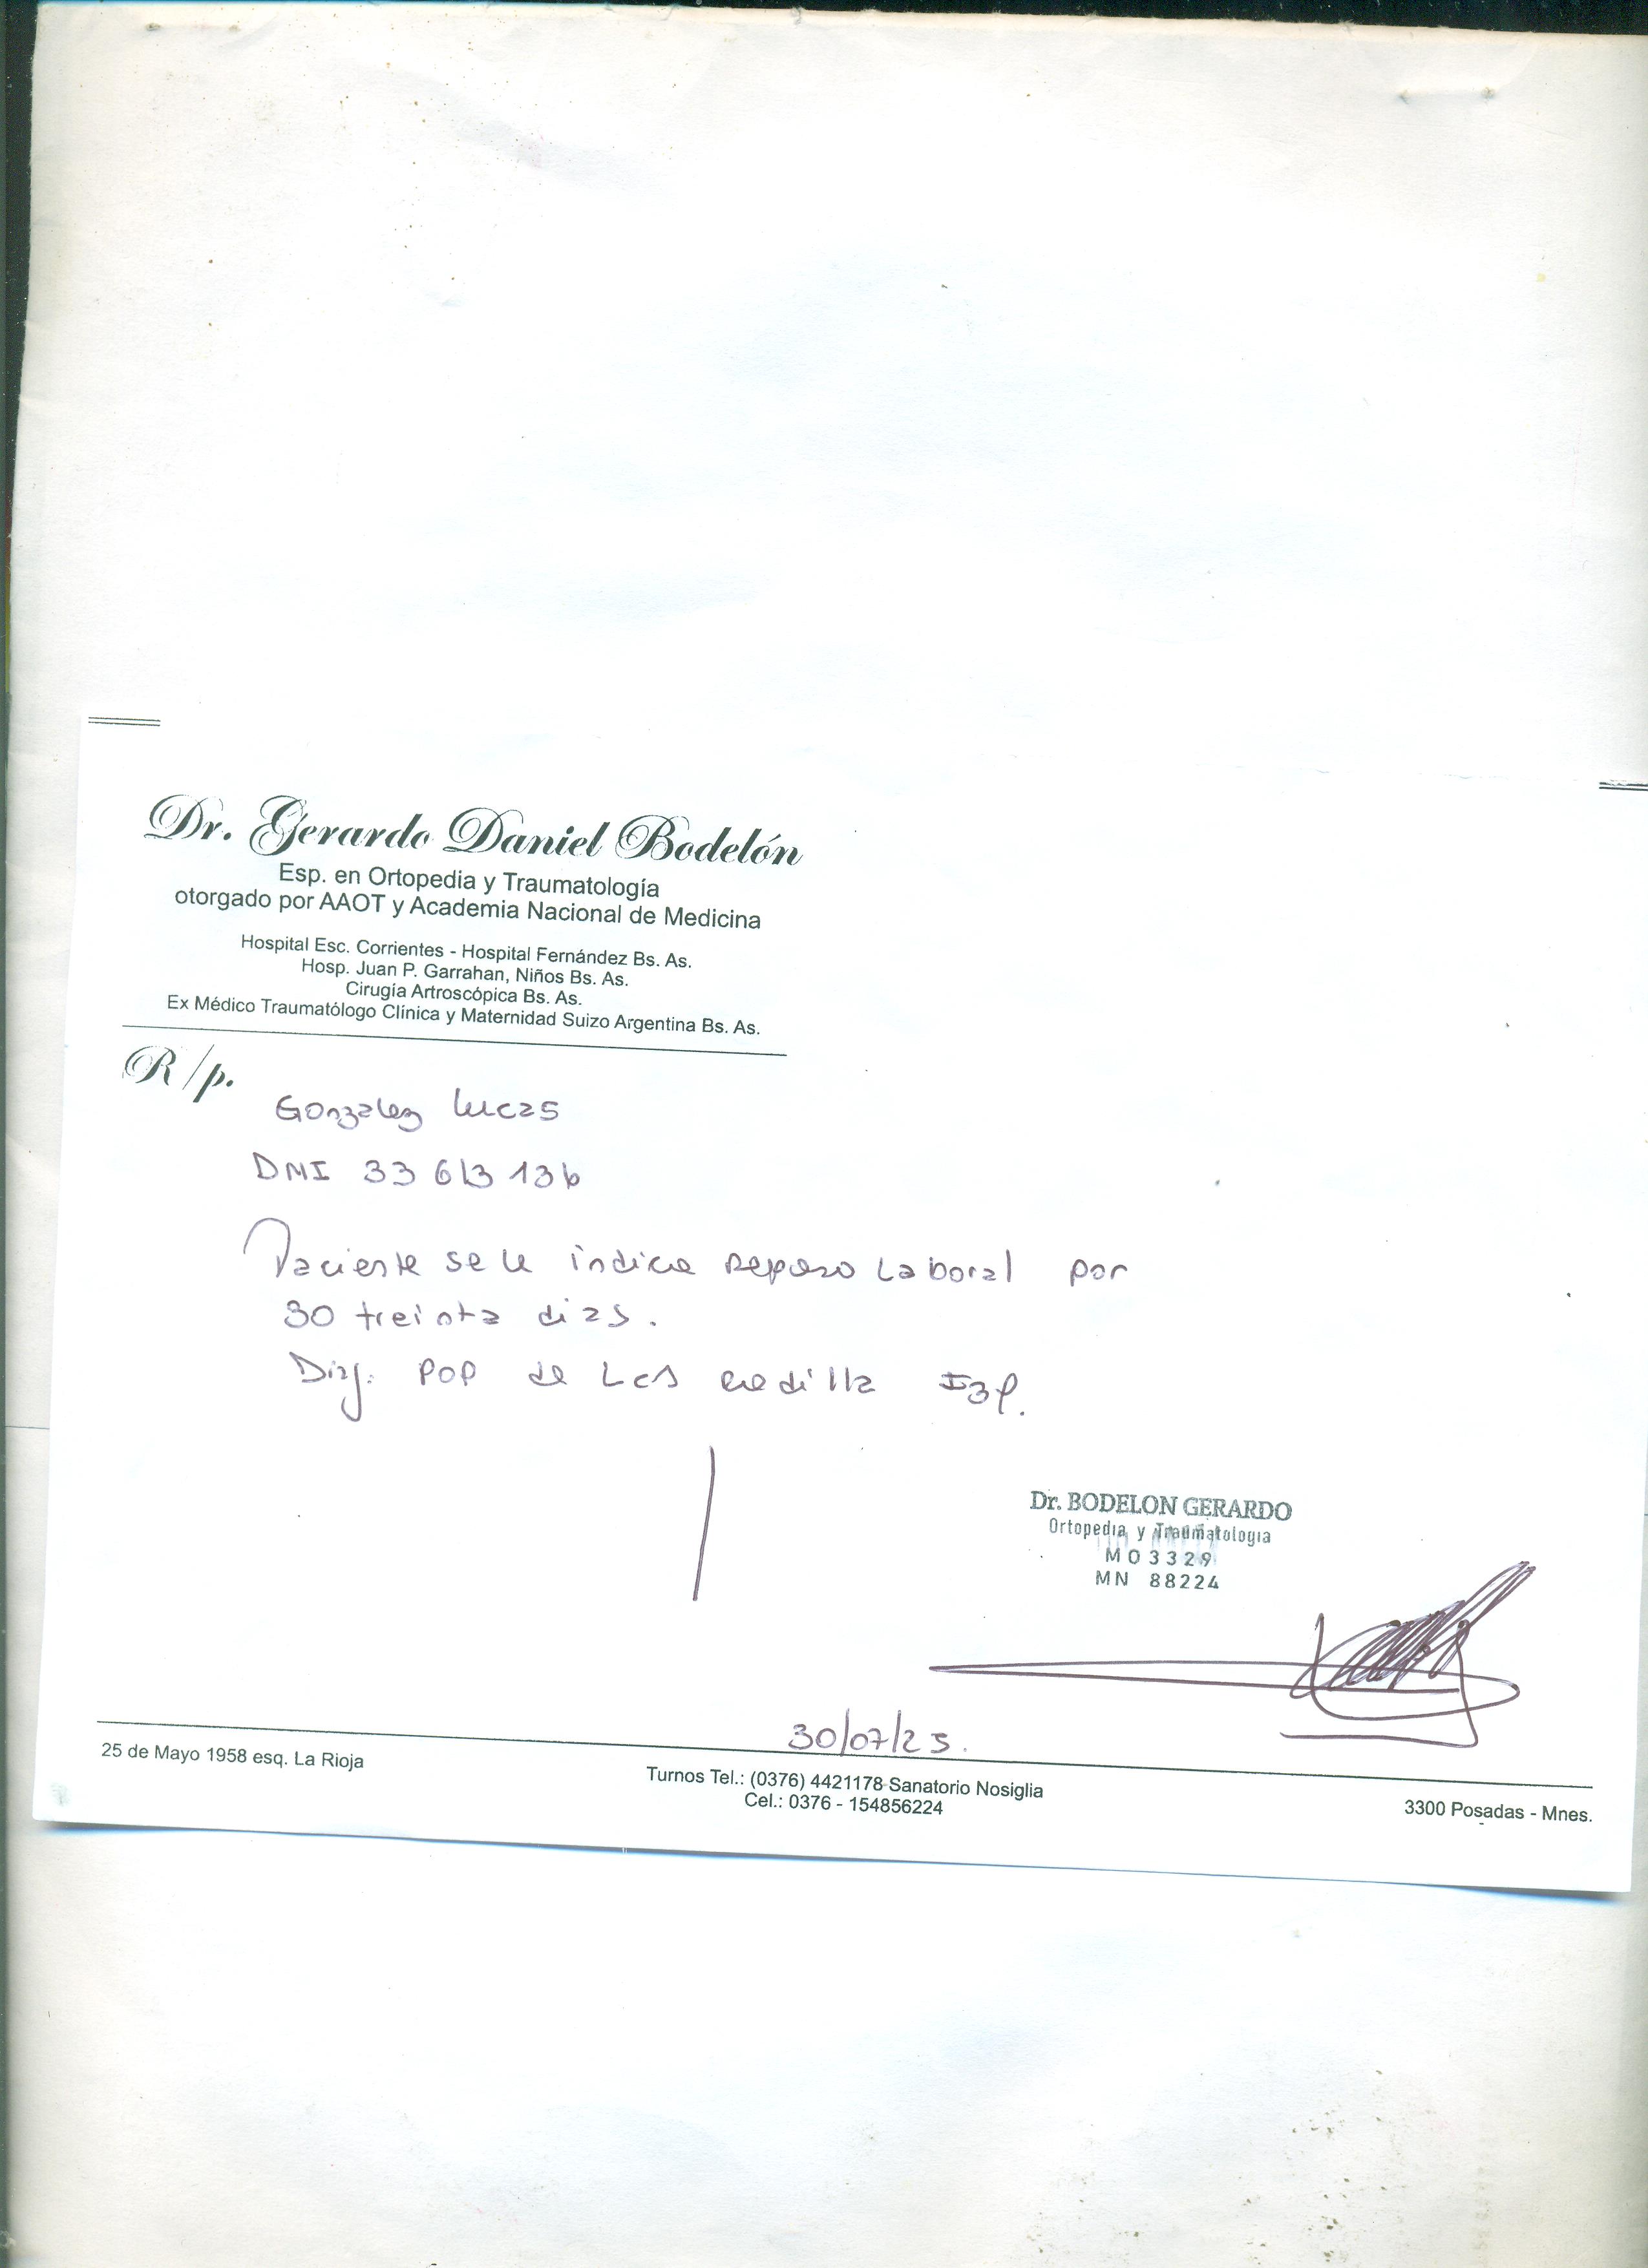 Dr. Gerardo Daniel Bodelón
Esp. en Ortopedia y Traumatología
otorgado por AAOT y Academia Nacional de Medicina
Hospital Esc. Corrientes - Hospital Fernández Bs. As.
Hosp. Juan P. Garrahan, Niños Bs. As.
Cirugía Artroscópica Bs. As.
Ex Médico Traumatólogo Clínica y Maternidad Suizo Argentina Bs. As.
R/p.
Gonzalez Lucas
DNI 33 613 136
Paciente se le indica reposo laboral por
30 treinta dias.
Diag: POP de LCA rodilla Izq.
Dr. BODELON GERARDO
Ortopedia y Traumatologia
MO3329
MN 88224
30/07/25.
25 de Mayo 1958 esq. La Rioja
Turnos Tel.: (0376) 4421178 Sanatorio Nosiglia
Cel.: 0376 - 154856224
3300 Posadas - Mnes.